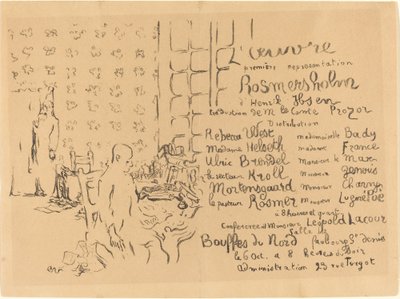 L'œuvre
première représentation
Rosmersholm
d'Henrik Ibsen
traduction de M. le Comte Prozor
Distribution
Rebecca West mademoiselle Bady
Madame Helseth madame France
Ulric Brendel Monsieur
le recteur Kroll Monsieur
Mortensgaard Monsieur Charny
le pasteur Rosmer Monsieur Lugné Poe
à 8 heures
Conférence de Monsieur Léopold Lacour
Salle des
Bouffes du Nord faubourg St Denis
le 6 oct. à 8 heures du soir
administration 23 rue Turgot